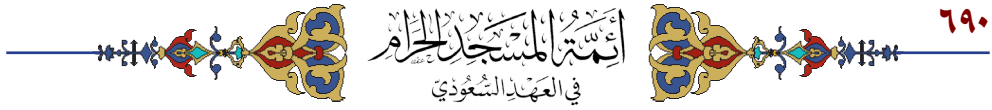 ٦٩٠
أَئِمَّةُ الْمَسْجِدِ الْحَرَامِ
فِي الْعَهْدِ السُّعُودِيِّ